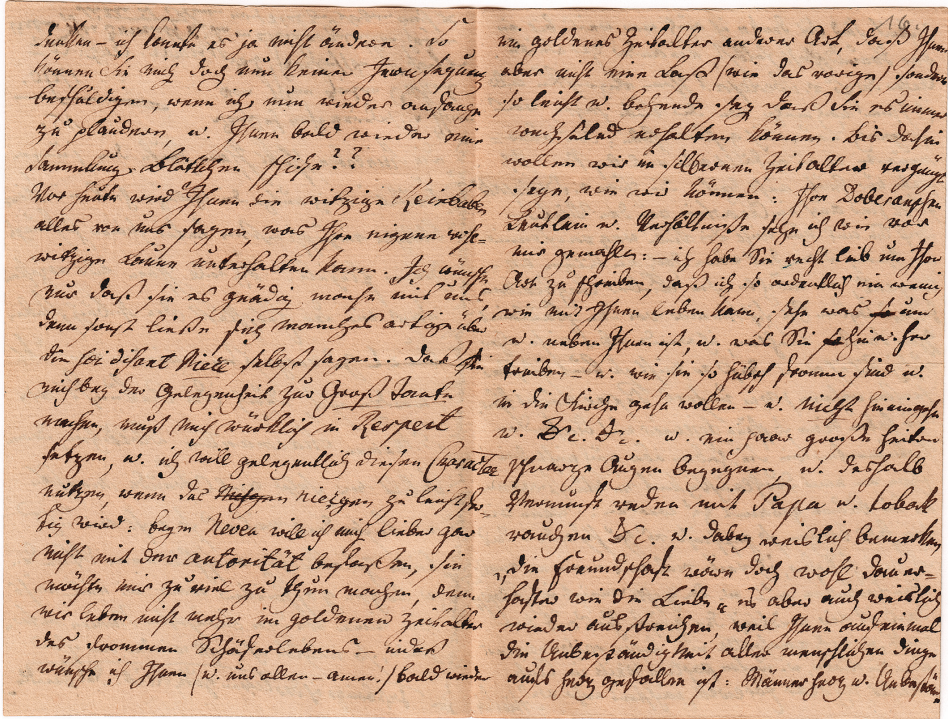 denken – ich konnte es ja nicht ändern. So
können Sie mich doch nun keiner
beschuldigen, wenn ich nun wieder anfange
zu plaudern, u. Ihnen bald wieder eine
Sammlung Blättchen schicke??
Vor heute wird Ihnen die witzige
alles von uns sagen, was Ihre eigene
witzige Laune unterhalten kann. Ich wünsche
nur daß sie es gnädig mache mit uns,
denn sonst ließe sich manches artige über
die soi disant Niece selbst sagen. Daß Sie
mich bey der Gelegenheit zur Groß Tante
machen, muß mich würklich in Respect
setzen, u. ich will gelegentlich diesen Caracter
nutzen, wenn das Niesgen zu leichtfer-
tig wird: beym Neveu will ich mich lieber gar
nicht mit der autorität befassen, sie
möchte mir zu viel zu thun machen denn
wir leben nicht mehr im goldenen Zeitalter
des frommen Schäferlebens – indeß
wünsche ich Ihnen (u. uns allen – amen!) bald wieder
19
ein goldenes Zeitalter anderer Art, daß Ihnen
aber nicht eine Last (wie das vorige) sondern
so leicht u. behende sey daß Sie es immer
erhalten können. Bis dahin
wollen wir im silbernen Zeitalter vergnügt
seyn, wie wir können: Ihre Doberanschen
Leutlein u. Verhältniße sehe ich wie vor
mir gemahlen: – ich habe Sie recht lieb um Ihre
Art zu schreiben, daß ich so ordentlich ein wenig
wie mit Ihnen leben kann, sehe was um
u. neben Ihnen ist, u. was Sie hin u. her
treiben – u. wie Sie so hübsch fromm sind u.
in die Kirche gehn wollen – u. nicht hineingehn
u. &c. &c. u. ein paar große heitere
schwarze Augen begegnen u. deshalb
Vernunft reden mit Papa u. toback
rauchen &c. u. dabey weislich bemerken
„die Freundschaft wäre doch wohl dauer-
hafter wie die Liebe“ es aber auch weislich
wieder ausstreichen, weil Ihnen auf einmal
die Unbeständigkeit aller menschlichen dinge
aufs herz gefallen ist: Männerherz u. Unbestän-